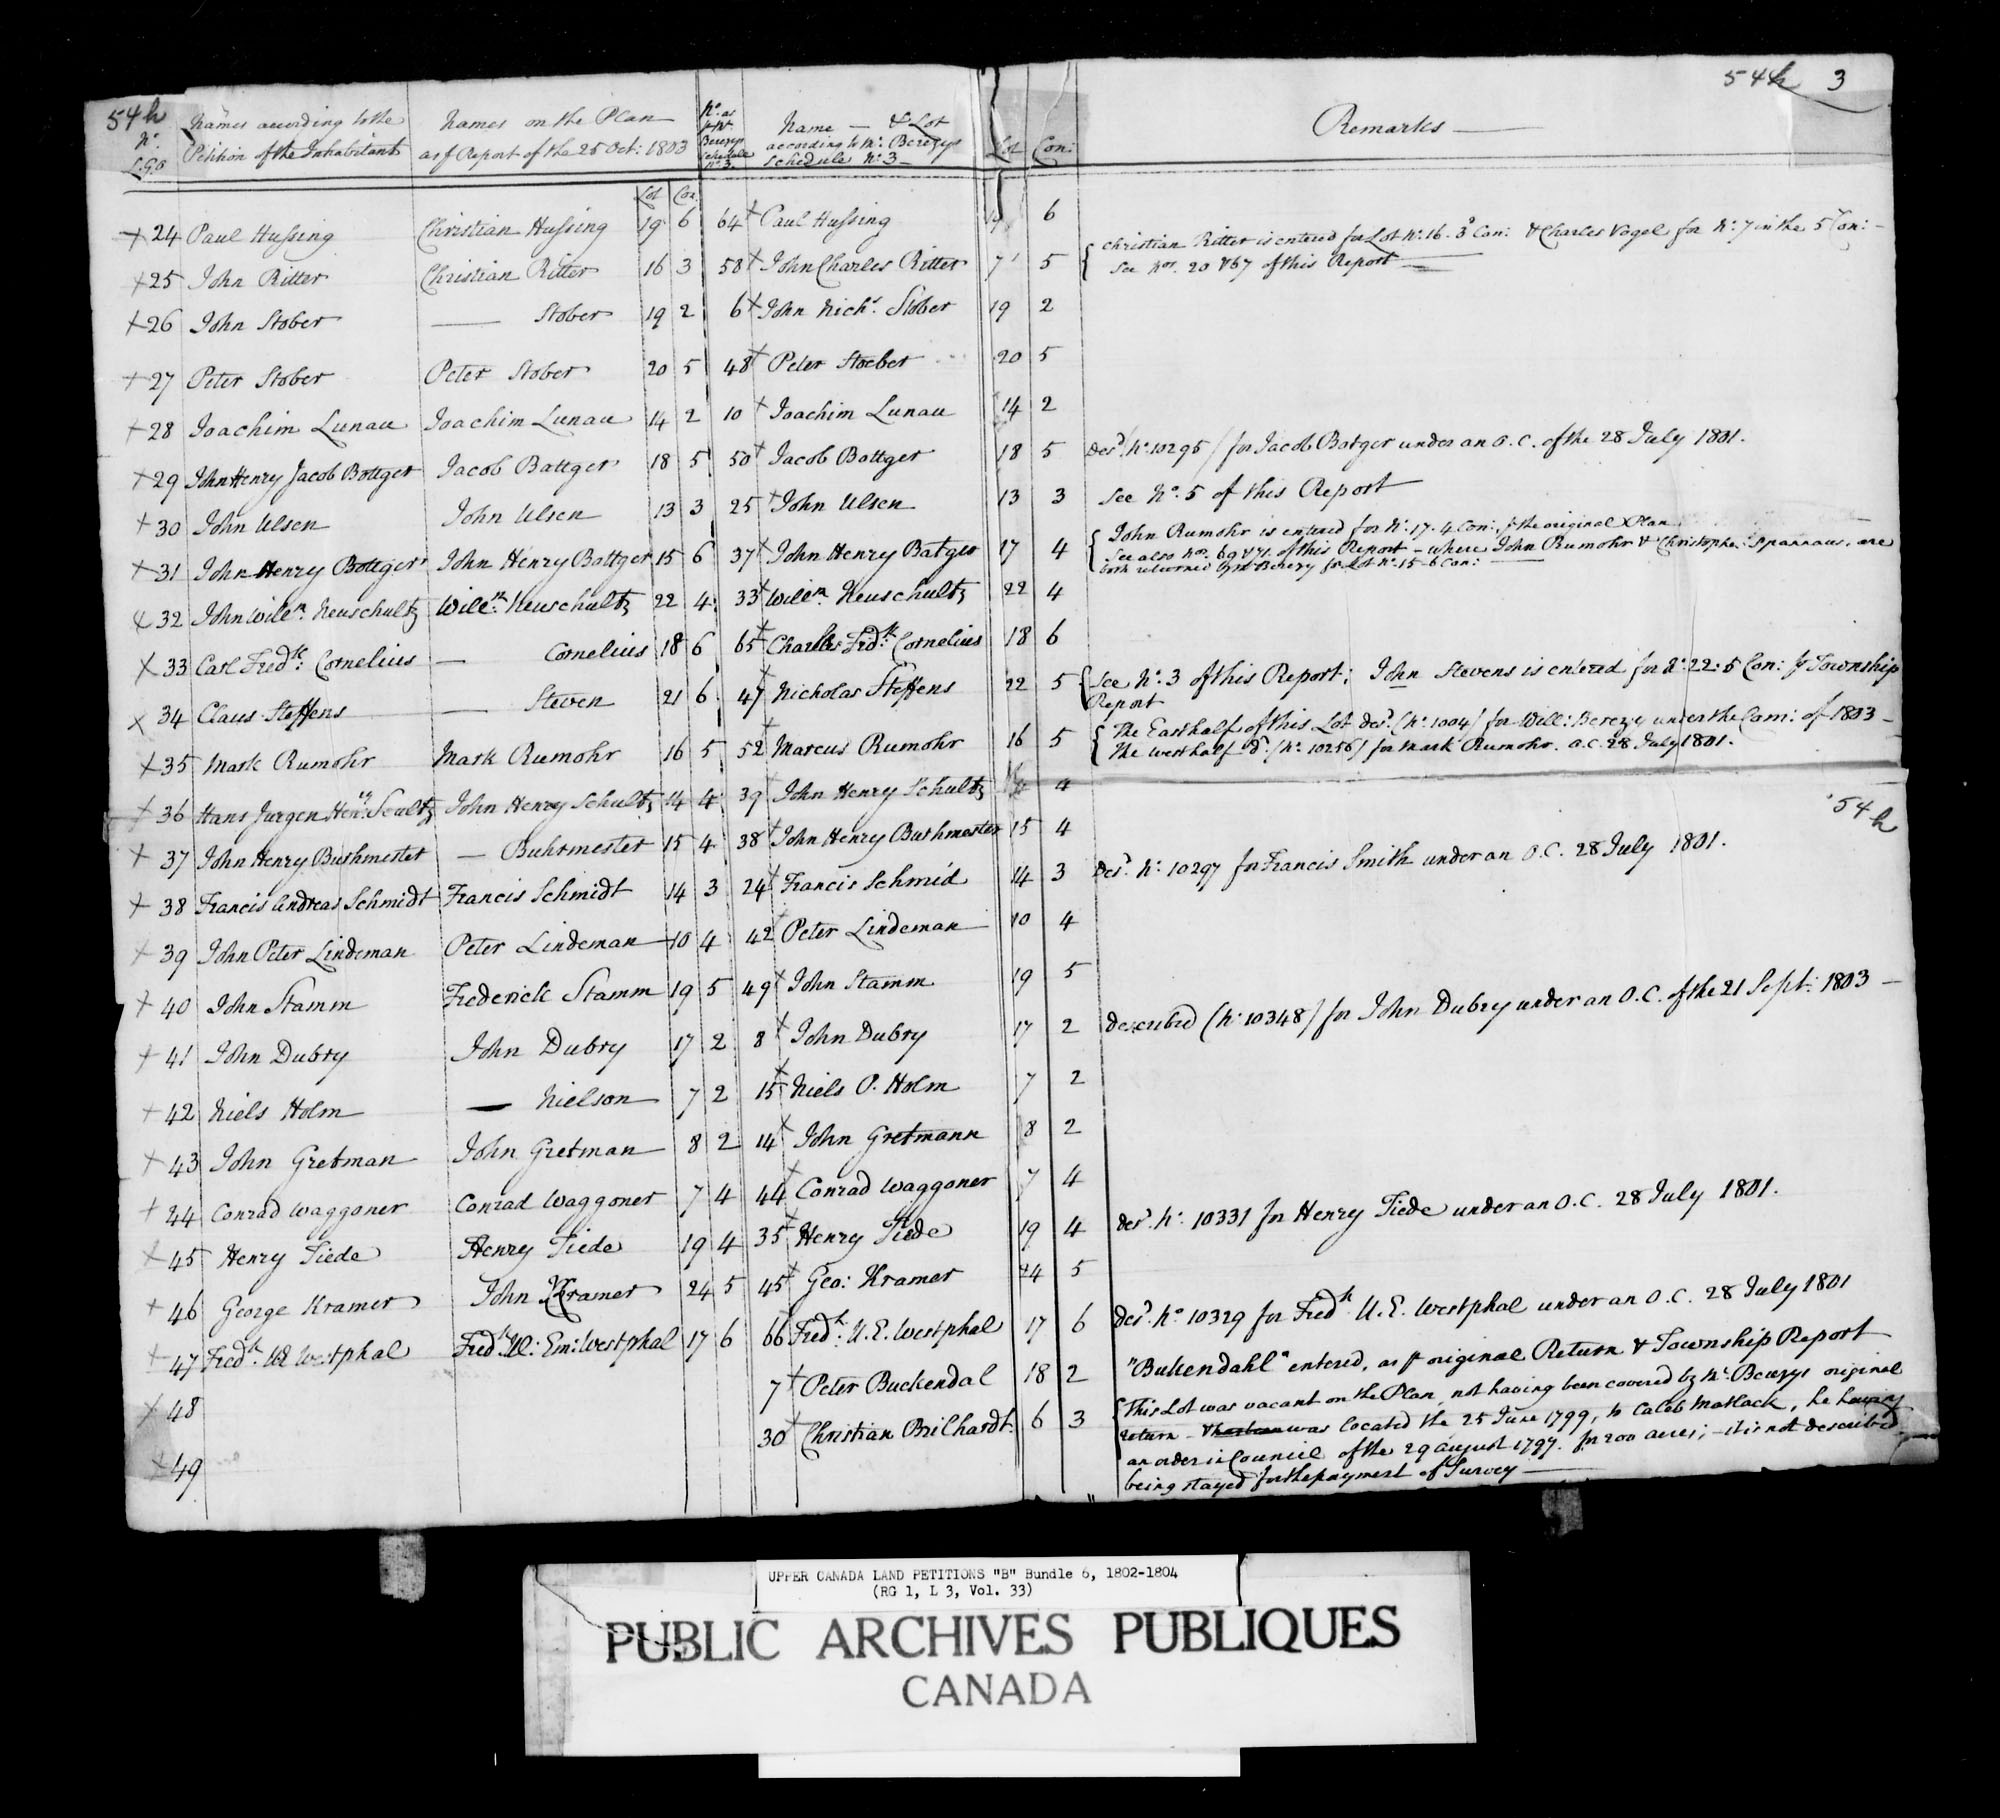 54h 3
54h
No. L.G.O
Names according to the Petition of the Inhabitants
Names on the Plan as p Report of the 25 Oct: 1803
No. as pr Mr. Berczys Schedule No. 3
Name — & Lot according to Mr. Berczys Schedule No. 3 —
Lot Con:
Remarks
Lot Con.
+ 24 Paul Hussing Christian Hussing 19 6 64 + Paul Hussing 19 6
+ 25 John Ritter Christian Ritter 16 3 58 + John Charles Ritter 7 5 { Christian Ritter is entered for Lot No. 16. 3d Con: & Charles Vogel for No. 7 in the 5 Con: –
See Nos. 20 & 67 of this Report
+ 26 John Stober — Stober 19 2 6 + John Nichs. Stober 19 2
+ 27 Peter Stober Peter Stober 20 5 48 + Peter Stoeber 20 5
+ 28 Joachim Lunau Joachim Lunau 14 2 10 + Joachim Lunau 14 2
+ 29 John Henry Jacob Bottger Jacob Battger 18 5 50 + Jacob Bottger 18 5 Desd. (No. 10295) for Jacob Botger under an O.C. of the 28 July 1801.
+ 30 John Ulsen John Ulsen 13 3 25 + John Ulsen 13 3 See No. 5 of this Report
+ 31 John Henry Bottger John Henry Bottger 15 6 37 + John Henry Batger 17 4 { John Rumohr is entered for No. 17. 4 Con: p the original Plan
See also Nos. 69 & 71 of this Report – where John Rumohr & Christopher Spannaus, are
both returned by Mr Berczy for Lot No. 15 – 6 Con:
+ 32 John Willm. Neuschultz Willm. Neuschultz 22 4 33 + Willm. Neuschultz 22 4
+ 33 Carl Fredk: Cornelius — Cornelius 18 6 65 + Charles Fredk: Cornelius 18 6
+ 34 Claus Steffens — Steven 21 6 47 + Nicholas Steffens 22 5 { See No. 3 of this Report; John Stevens is entered for No. 22. 5 Con: p Township
Report
+ 35 Mark Rumohr Mark Rumohr 16 5 52 + Marcus Rumohr 16 5 { The East half of this Lot desd. (No. 1004) for Will: Berczy under the Com: of 1803 –
The west half do. (No. 10256) for Mark Rumohr. O.C. 28 July 1801.
+ 36 Hans Jurgen Heny. Scultz John Henry Schultz 14 4 39 + John Henry Schultz 14 4
54h
+ 37 John Henry Bushmester — Buhrmester 15 4 38 + John Henry Bushmester 15 4
+ 38 Francis Andreas Schmidt Francis Schmidt 14 3 24 + Francis Schmid 14 3 Desd. No. 10297 for Francis Smith under an O.C. 28 July 1801.
+ 39 John Peter Lindeman Peter Lindeman 10 4 42 + Peter Lindeman 10 4
+ 40 John Stamm Frederick Stamm 19 5 49 + John Stamm 19 5
+ 41 John Dubry John Dubry 17 2 8 + John Dubry 17 2 described (No. 10348) for John Dubry under an O.C. of the 21 Sept: 1803 –
+ 42 Niels Holm — Nielson 7 2 15 + Niels P. Holm 7 2
+ 43 John Gretman John Gretman 8 2 14 + John Gretmann 8 2
+ 44 Conrad Waggoner Conrad Waggoner 7 4 44 + Conrad Waggoner 7 4
+ 45 Henry Tiede Henry Tiede 19 4 35 + Henry Tiede 19 4 desd. No. 10331 for Henry Tiede under an O.C. 28 July 1801.
+ 46 George Kramer John Kramer 24 5 45 + Geo: Kramer 24 5
+ 47 Fredk. Ul Westphal Fredk. Ul: Em: Westphal 17 6 66 + Fredk: U.E. Westphal 17 6 desd. No. 10329 for Fredk. U.E. Westphal under an O.C. 28 July 1801
+ 48 7 + Peter Buckendal 18 2 "Bukendahl" entered, as p original Return & Township Report
+ 49 30 + Christian Brilhardt. 6 3 { This Lot was vacant on the Plan, not having been covered by Mr. Berczys original
return – was located the 25 June 1799, to Caleb Matlack, he having
an order in Council of the 29 August 1797. for 200 acres; – it is not described
being stayed for the payment of Survey
UPPER CANADA LAND PETITIONS "B" Bundle 6, 1802-1804
(RG 1, L 3, Vol. 33)
PUBLIC ARCHIVES PUBLIQUES
CANADA